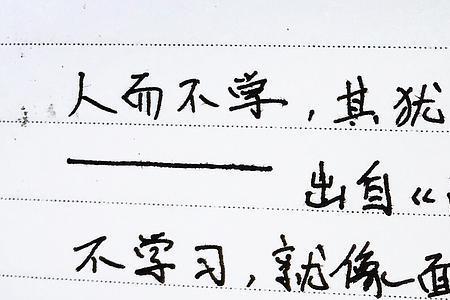 人而不学，其犹
出自《
不学习，就像一面